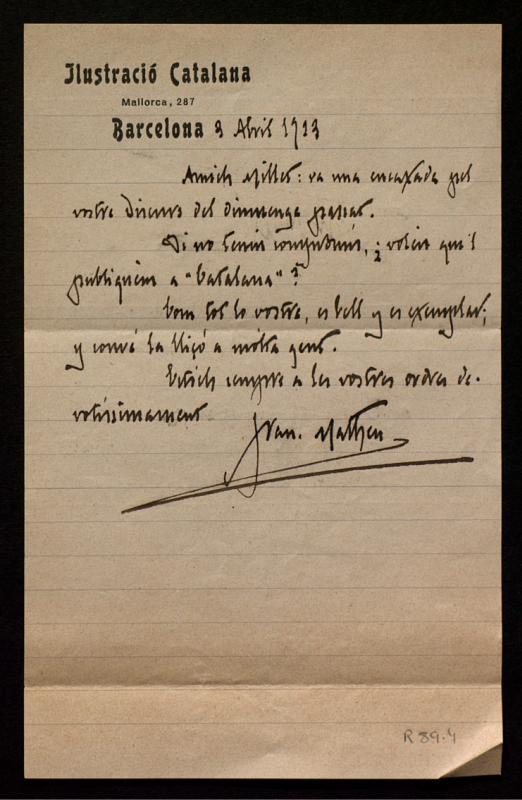 Ilustració Catalana
Mallorca, 287
Barcelona 3 Abril 1913
Amich Millet: va una encaxada pel
vostre discurs del diumenge passat.
Si no teniu compromís, ¿voleu qu'l
publiquém a "Catalana"?
Com tot lo vostre, es bell y es exemplar;
y convé la lliçó a molta gent.
Estich sempre a les vostres ordres de-
votissimament
Fran. Matheu
R 89.4